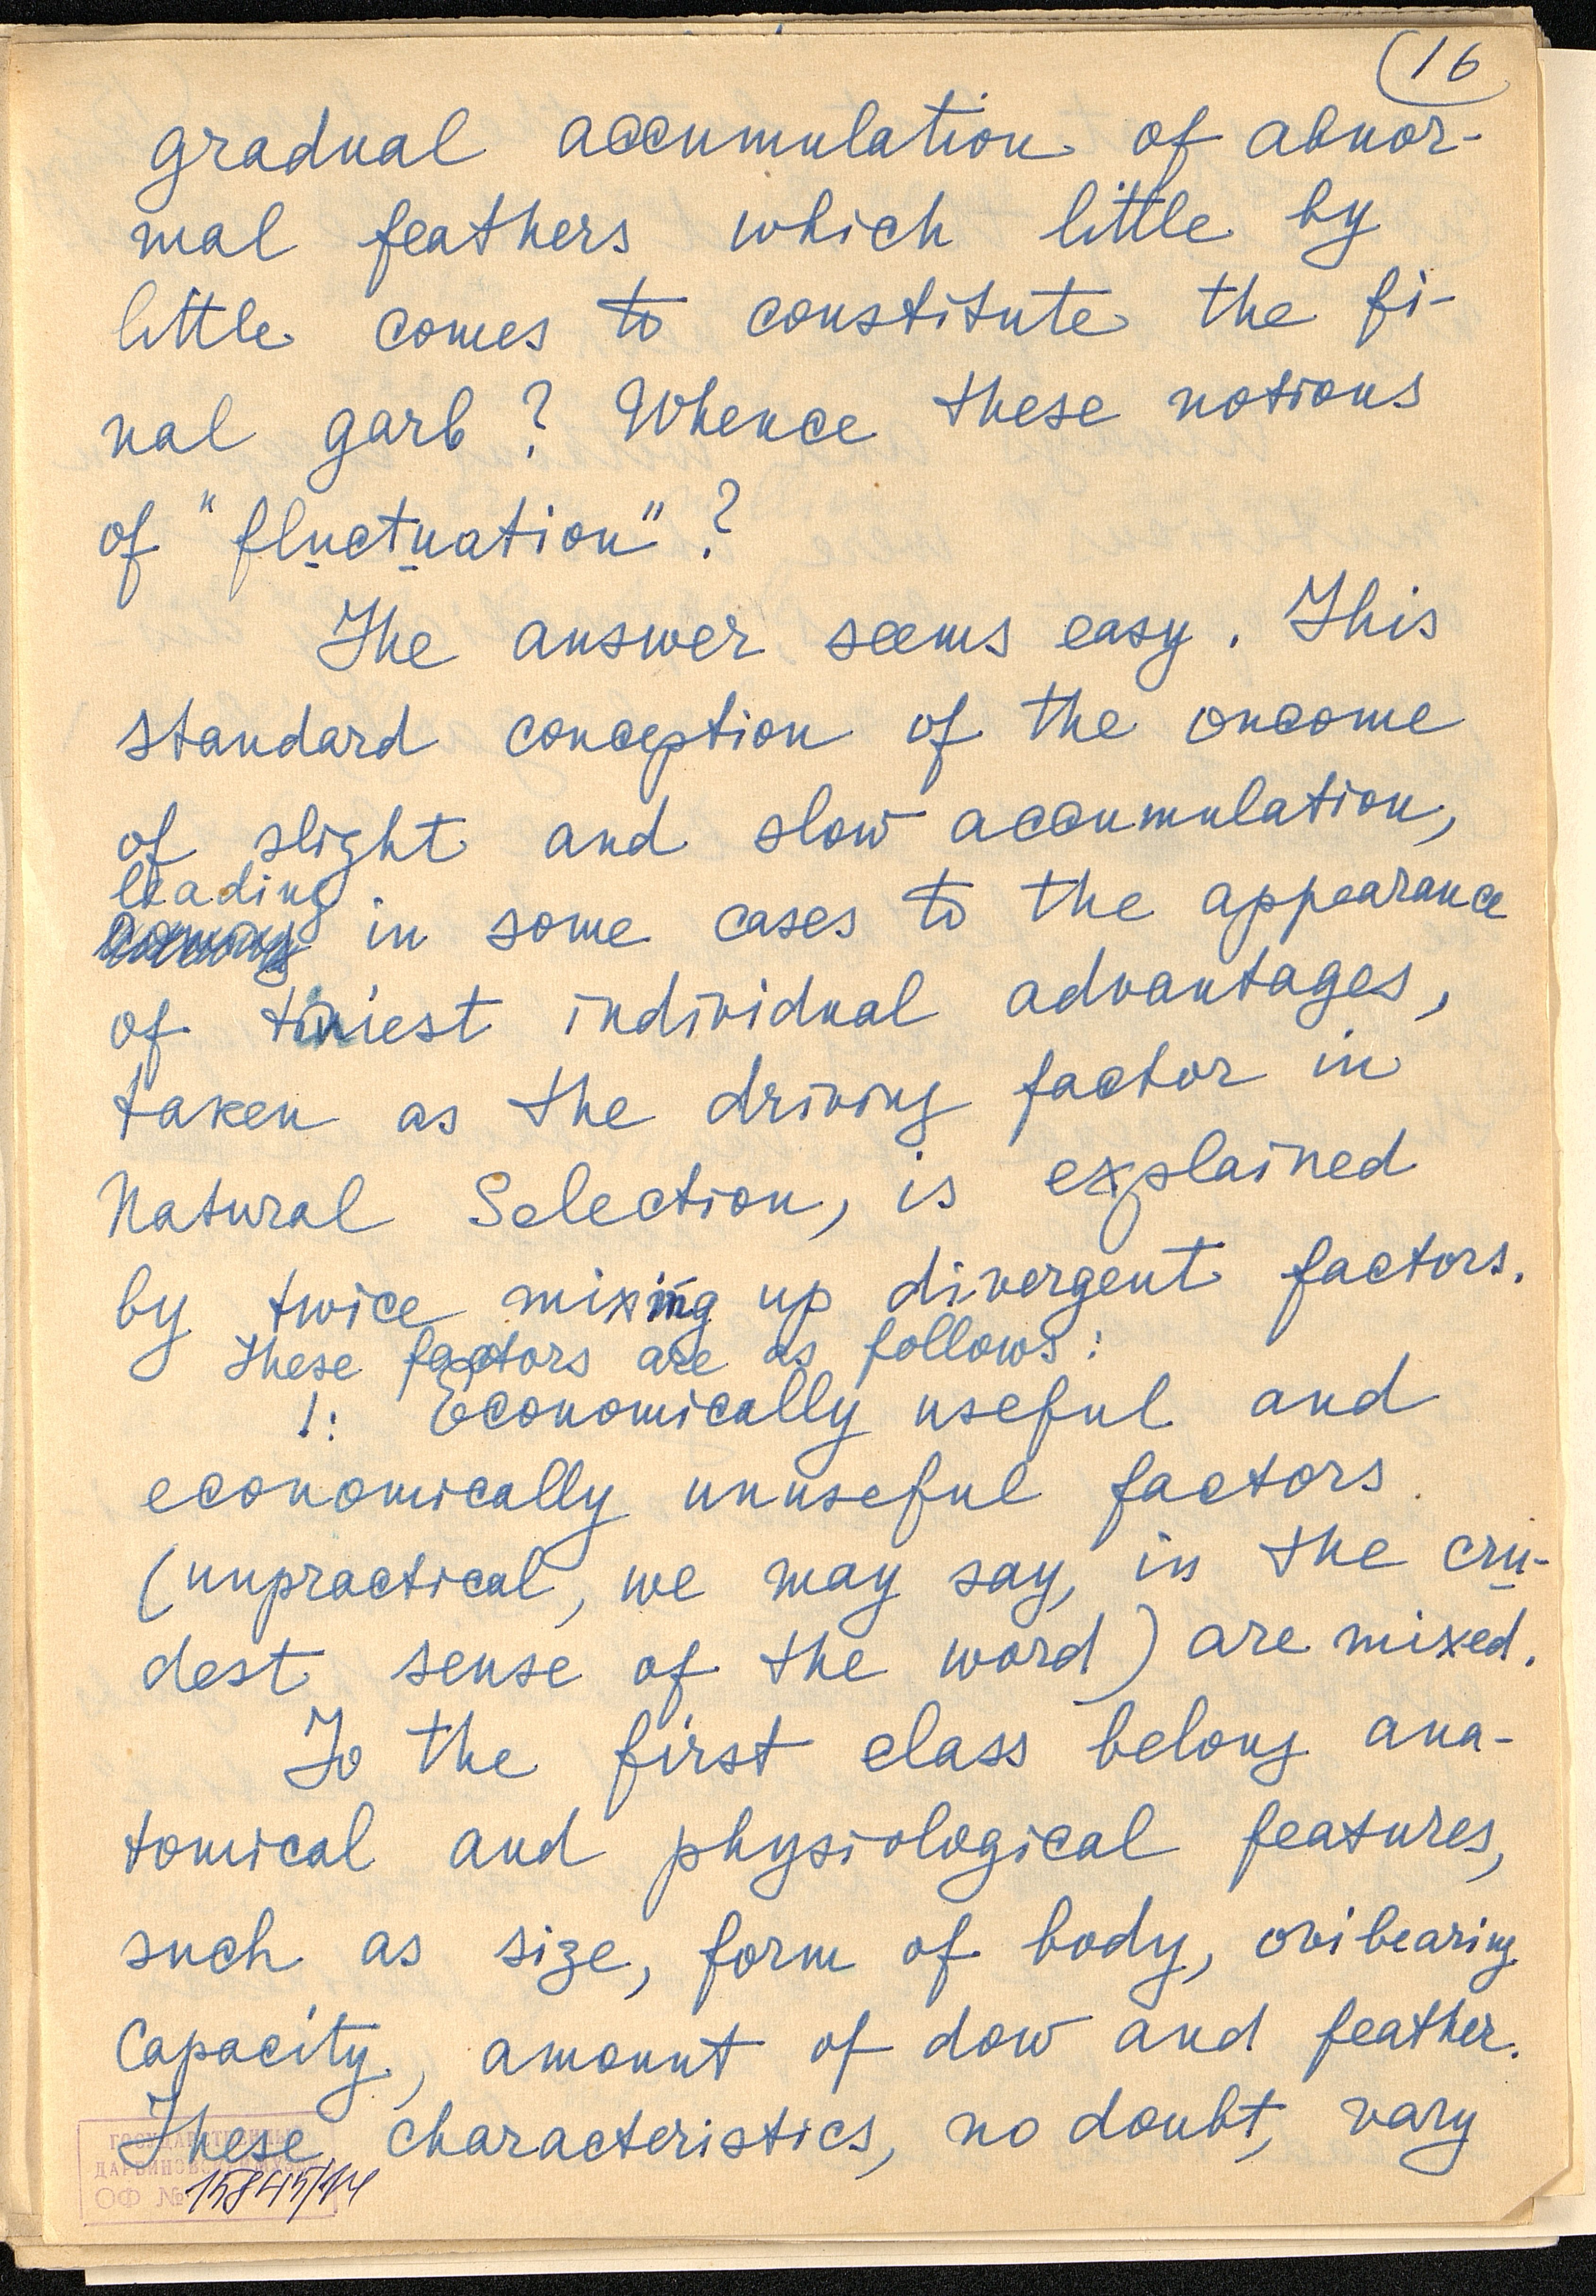 16
gradual accumulation of abnor-
mal feathers which little by
little comes to constitute the fi-
nal garb? Whence these notions
of "fluctuation"?
The answer seems easy. This
standard conception of the oncome
of slight and slow accumulation,
leading
in some cases to the appearance
of tiniest individual advantages,
taken as the driving factor in
Natural Selection, is explained
by twice mixing up divergent factors.
These factors are as follows:
1. Economically useful and
economically unuseful factors
(unpractical, we may say, in the cru-
dest sense of the word) are mixed.
To the first class belong ana-
tomical and physiological features,
such as size, form of body, ovibearing
capacity, amount of dow and feather.
These characteristics, no doubt, vary
ГОСУДАРСТВЕННЫЙ
ДАРВИНОВСКИЙ МУЗЕЙ
ОФ № 15845/14